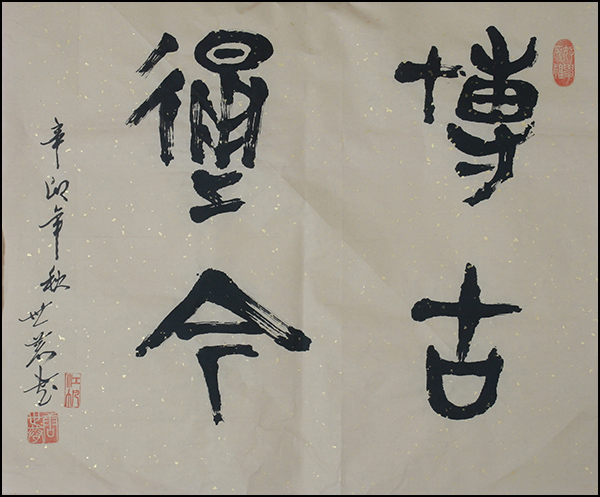 博古
通今
辛卯年秋世书